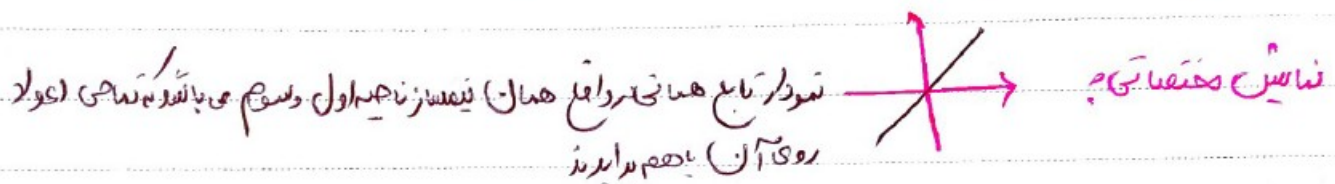 نمایش مختصاتی: نمودار تابع همانی در واقع همان نیمساز ناحیه اول و سوم می باشد که تمامی اعداد
روی آن با هم برابرند